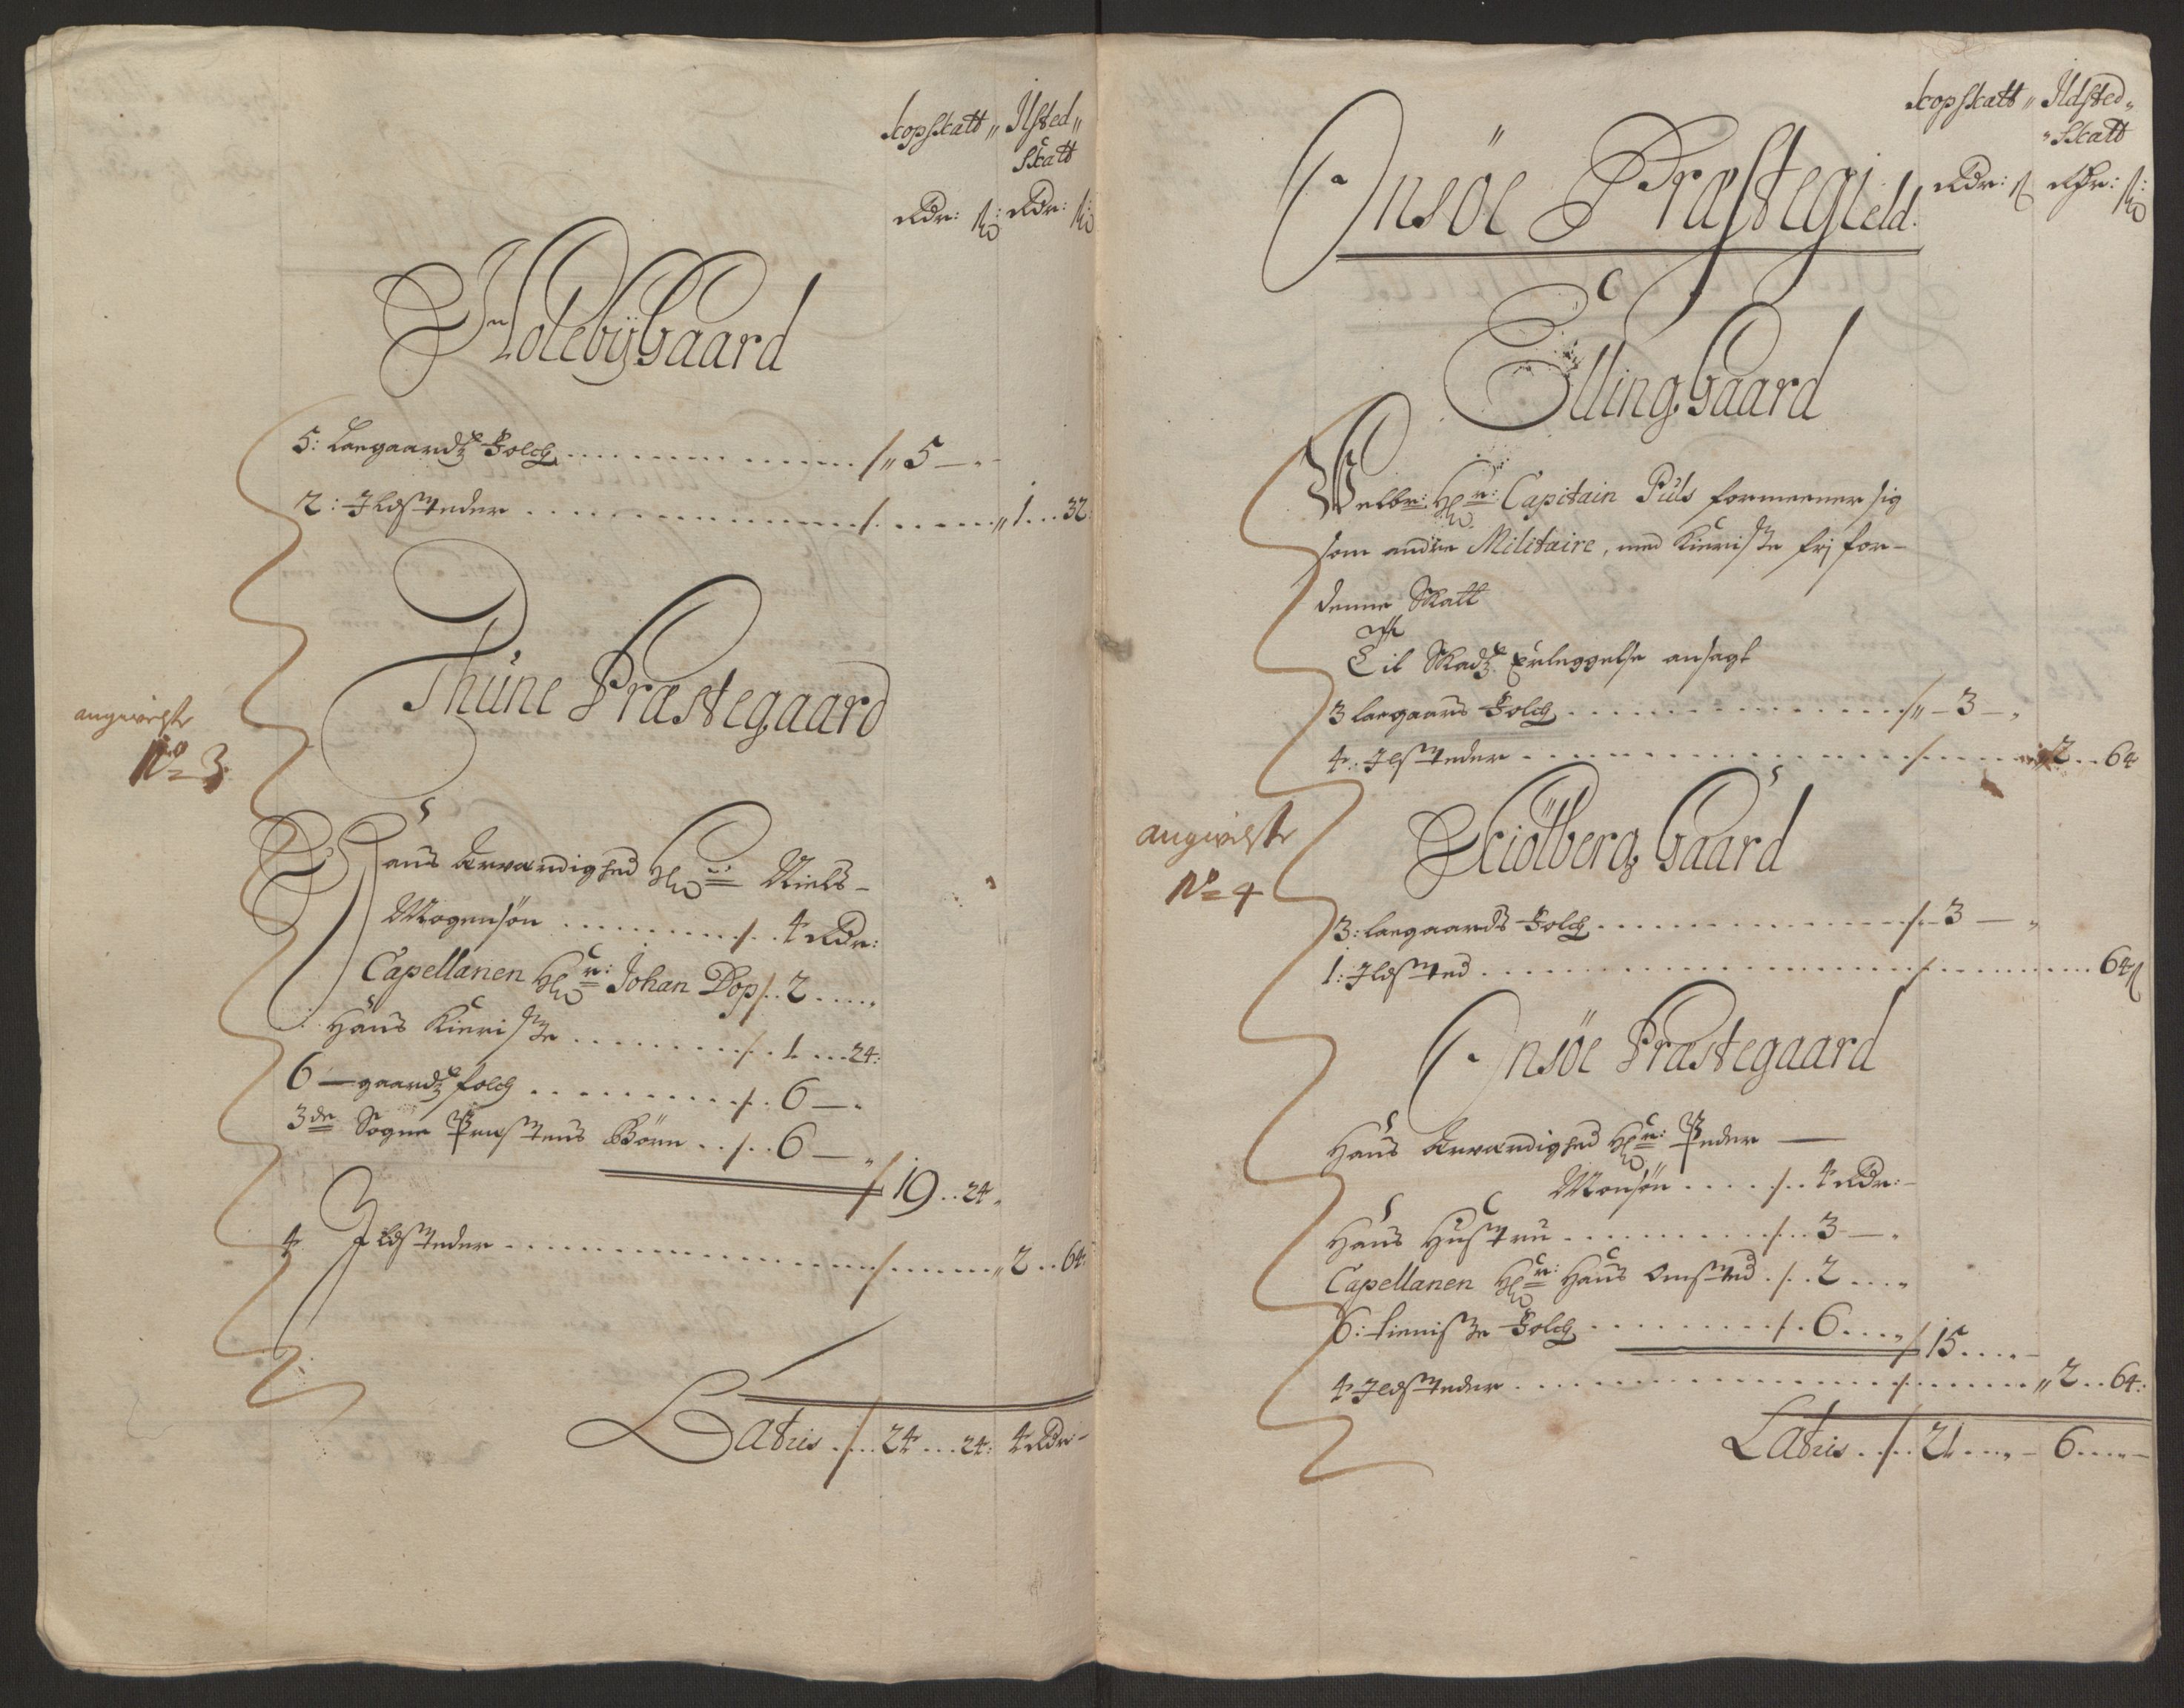 kopskatt „ Ilsted„
Skatt
Rdr: ß: Rdr: ß:
Holebÿ Gaard
5: Laegaardz Folch ......... /„ 5 —
2: Ildsteder ......... / ......„ 1 ... 32
Thüne Præstegaard
angivelse
No 3.
Hans Ærværdighed Hr: Niels-
Mogensøn ......... / . 4 Rdr:
Capellanen Hr: Johan Dop / .. 2 .....
Hans Kieriste ......... / . 1 ... 24:
6 — gaardz folch ......... / . 6 —
3de Sogne Præstens Börn ... / .. 6 — „
/ 19 .. 24 „
4 Ildsteder ......... / ......„ 2 .. 64:
Latus ... / ... 24 ... 24: 4 Rdr -
kopskatt „ Ildsted„
„Skatt
Rdr: ß Rdr: ß:
Onsöe Præstegield.
Elling Gaard
Welbr: Hr: Capitain Püls formeener sig
som andre Militaire, med Kieriste frj for-
denne Skatt
Til Skadz Erleggelse ansagt
3 Laegaards Folch ......... /„ - 3 - „
4: Ilsteder ......... / ...... 2 .. 64
Kiölberg Gaard
angivelse
No 4
3: Laegaards Folch ......... / - 3 — „
1: Ildsted ......... / ......... 64 ß
Onsöe Præstegaard
Hans Ærværdighed Hr: Peder —
Monsøn ..... / .. 4 Rdr: -
Hans Hüstrü ......... / ... 3 — .
Capellanen Hr: Hans Omsted . / . 2 ....
6: tieniste Folch ......... / . 6 .... / 15 .... -
4 Ildsteder ......... / ......„ 2 .. 64:
Latus ... / .. 21 .... - 6 .... -